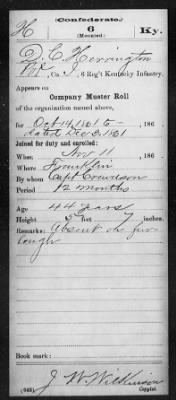 H
(Confederate.)
6
(Mounted.)
Ky.
D. C. Herrington
Pvt, Co. 6 Reg't Kentucky Infantry.
Appears on
Company Muster Roll
of the organization named above,
for Oct 14, 1861 to , 186 .
dated Dec 3, 1861
Joined for duty and enrolled:
When Nov 11 , 186 .
Where Franklin
By whom Capt Crewdson
Period 12 months
Age 44 years
Height 5 feet 7 inches.
Remarks: Absent on fur-
lough
Book mark:
(642) J. W. Wilkinson
Copyist.